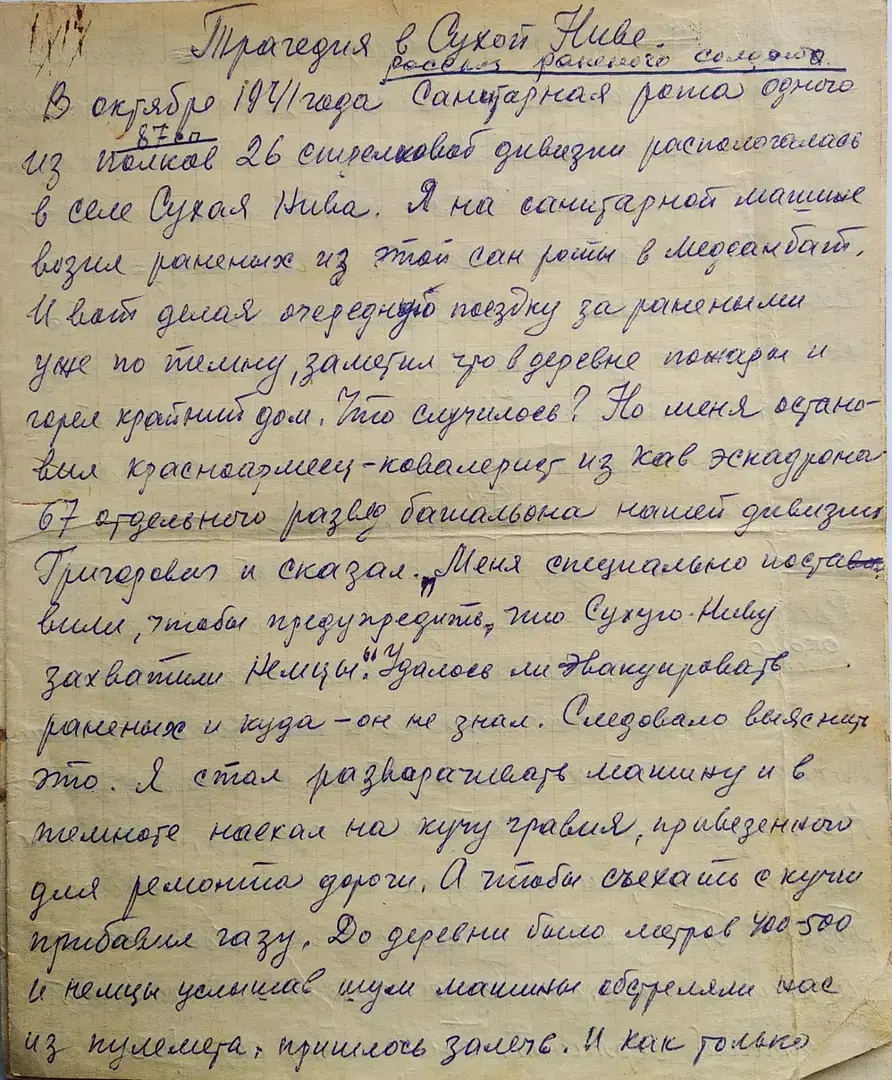 Трагедия в Сухой Ниве.
рассказ раненого солдата.
В октябре 1941 года санитарная рота одного
87 сп
из полков 26 стрелковой дивизии распологалась
в селе Сухая Нива. Я на санитарной машине
возил раненых из этой сан роты в медсанбат.
И вот делая очередную поездку за ранеными
уже по темну, заметил что в деревне пожары и
горел крайний дом. Что случилось? Но меня остано-
вил красноармеец-ковалерист из кав эскадрона
67 отдельного развед батальона нашей дивизии
Григорович и сказал. „Меня специально поста
вили, чтобы предупредить, что Сухую-Ниву
захватили Немцы." Удалось ли эвакуировать
раненых и куда - он не знал. Следовало выяснить
это. Я стал разварачивать машину и в
темноте наехал на кучу гравия, привезенного
для ремонта дороги. А чтобы съехать с кучи
прибавил газу. До деревни было метров 400-500
и немцы услышав шум машины обстреляли нас
из пулемета, пришлось залечь. И как только